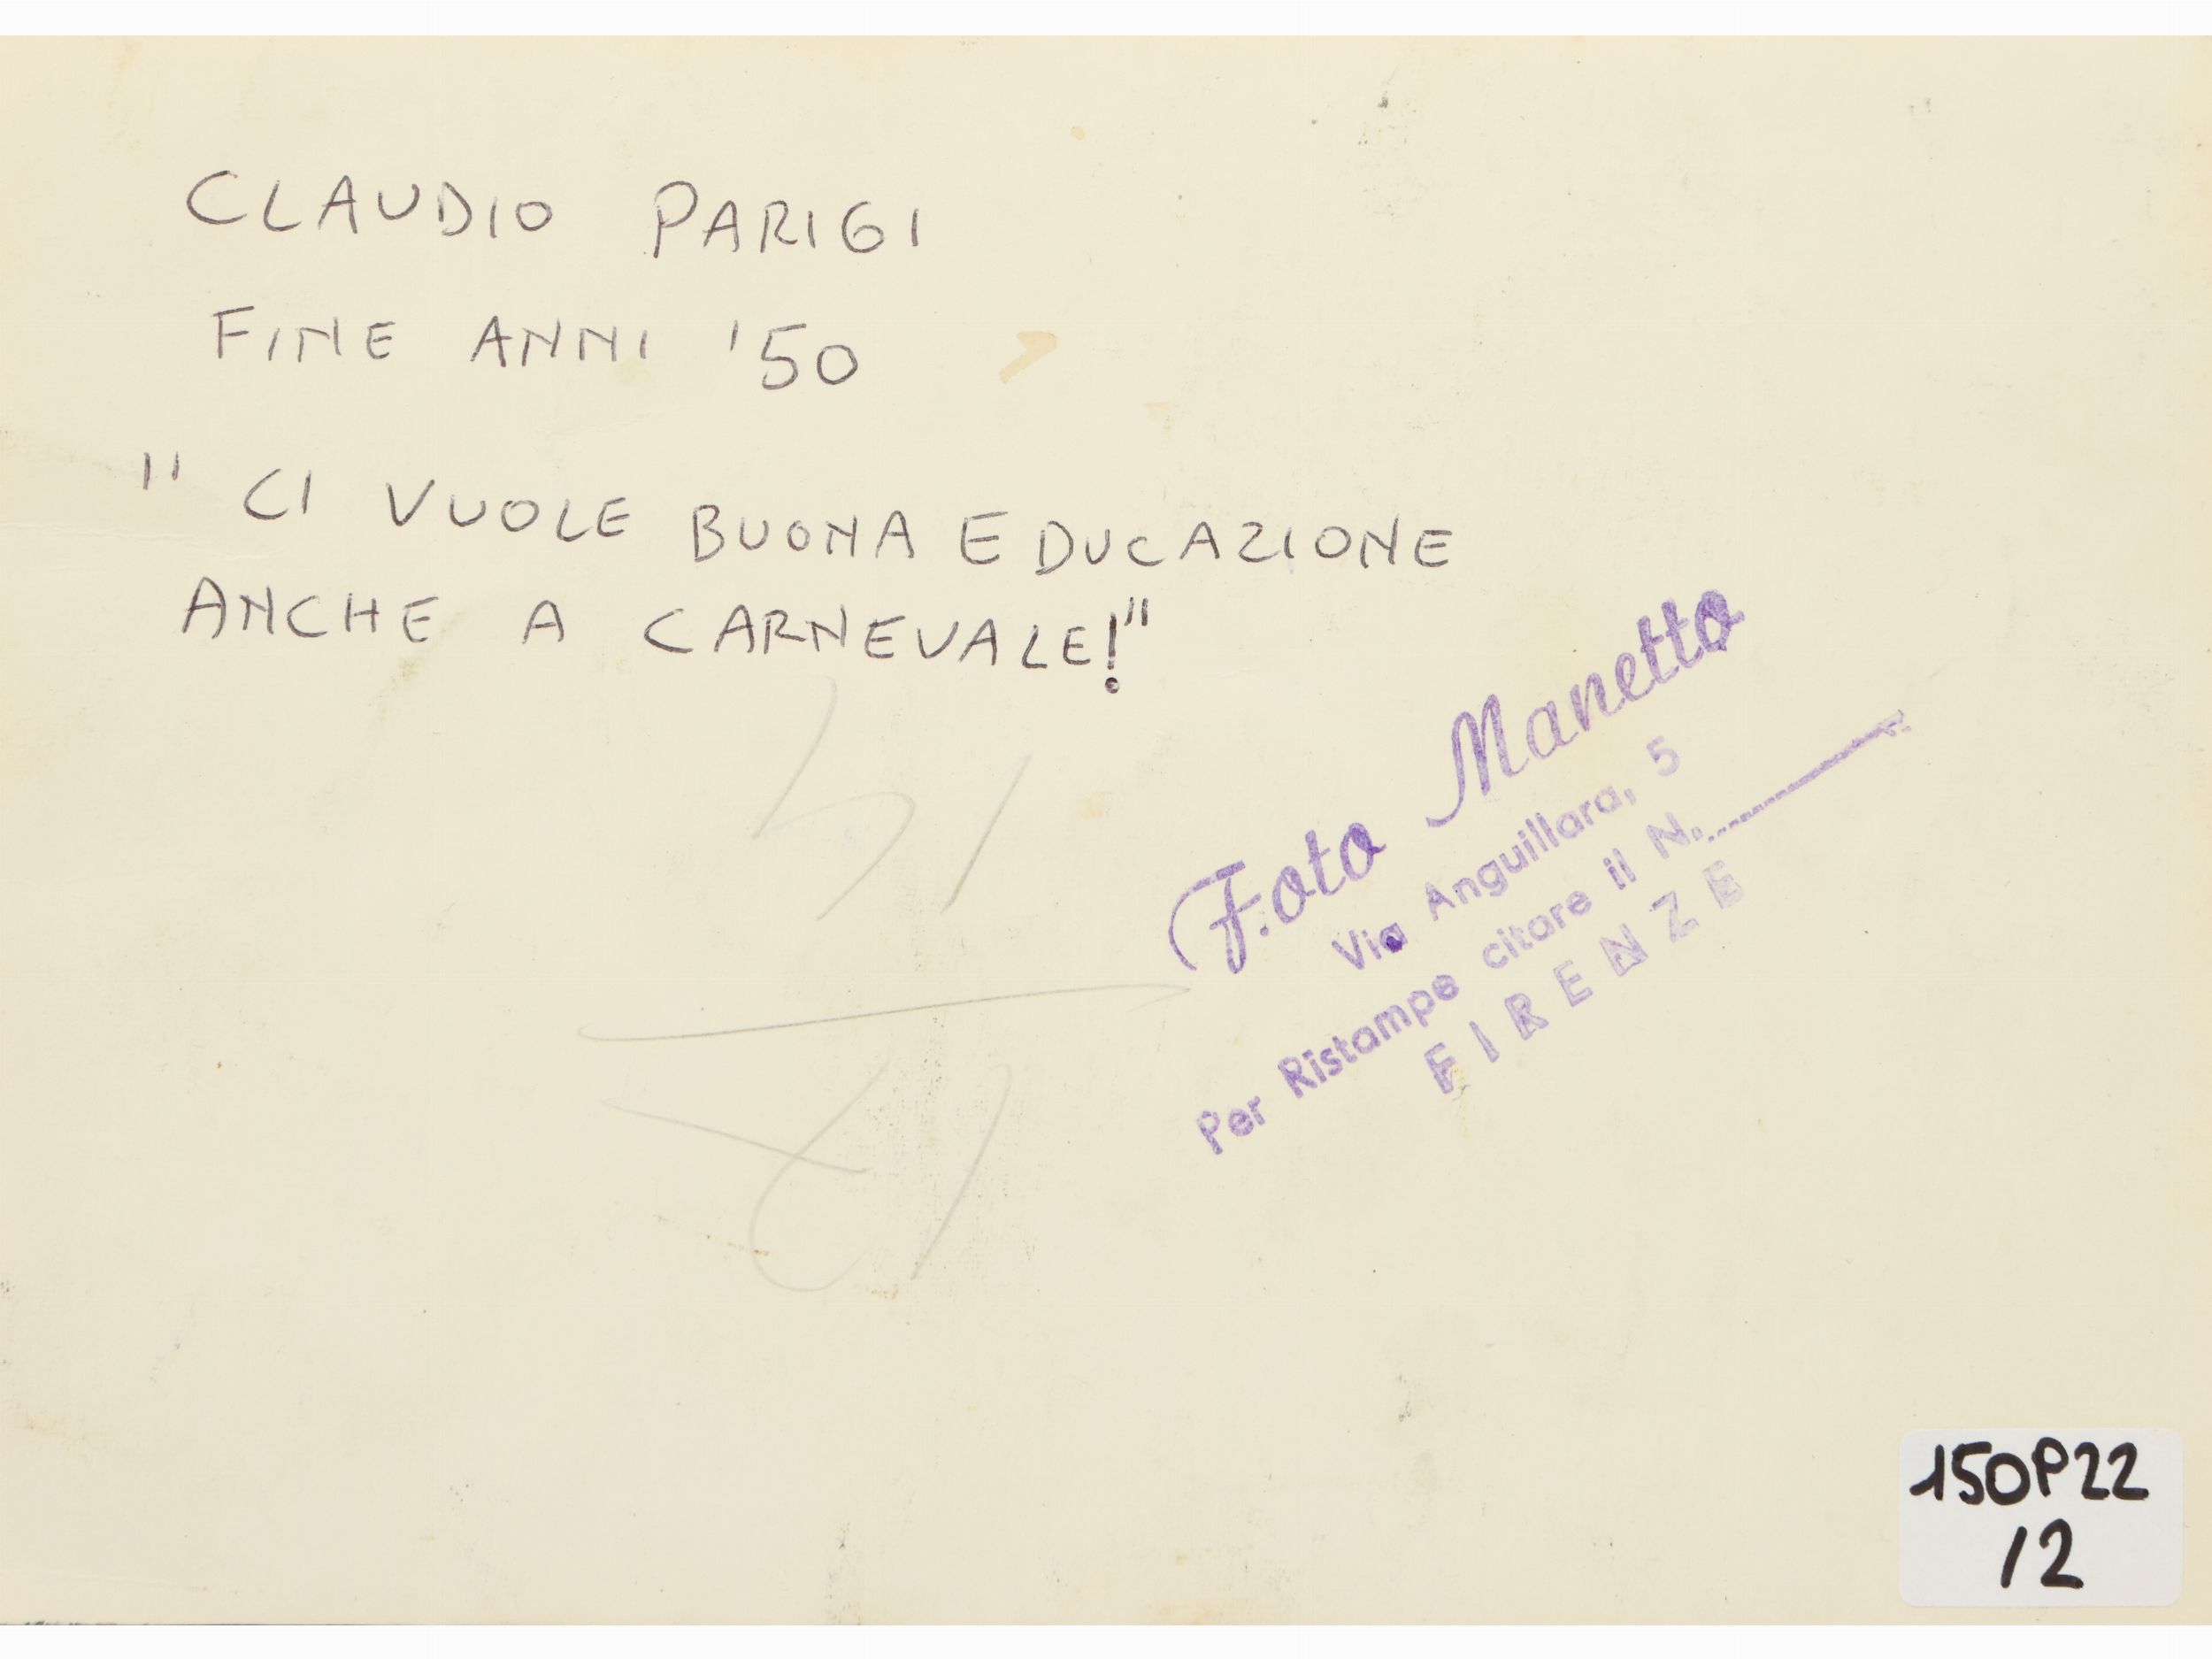 CLAUDIO PARIGI
FINE ANNI '50
"CI VUOLE BUONA EDUCAZIONE
ANCHE A CARNEVALE!"
Foto Manetto
Via Anguillara, 5
Per Ristampe citare il N.
FIRENZE
150P22
/2